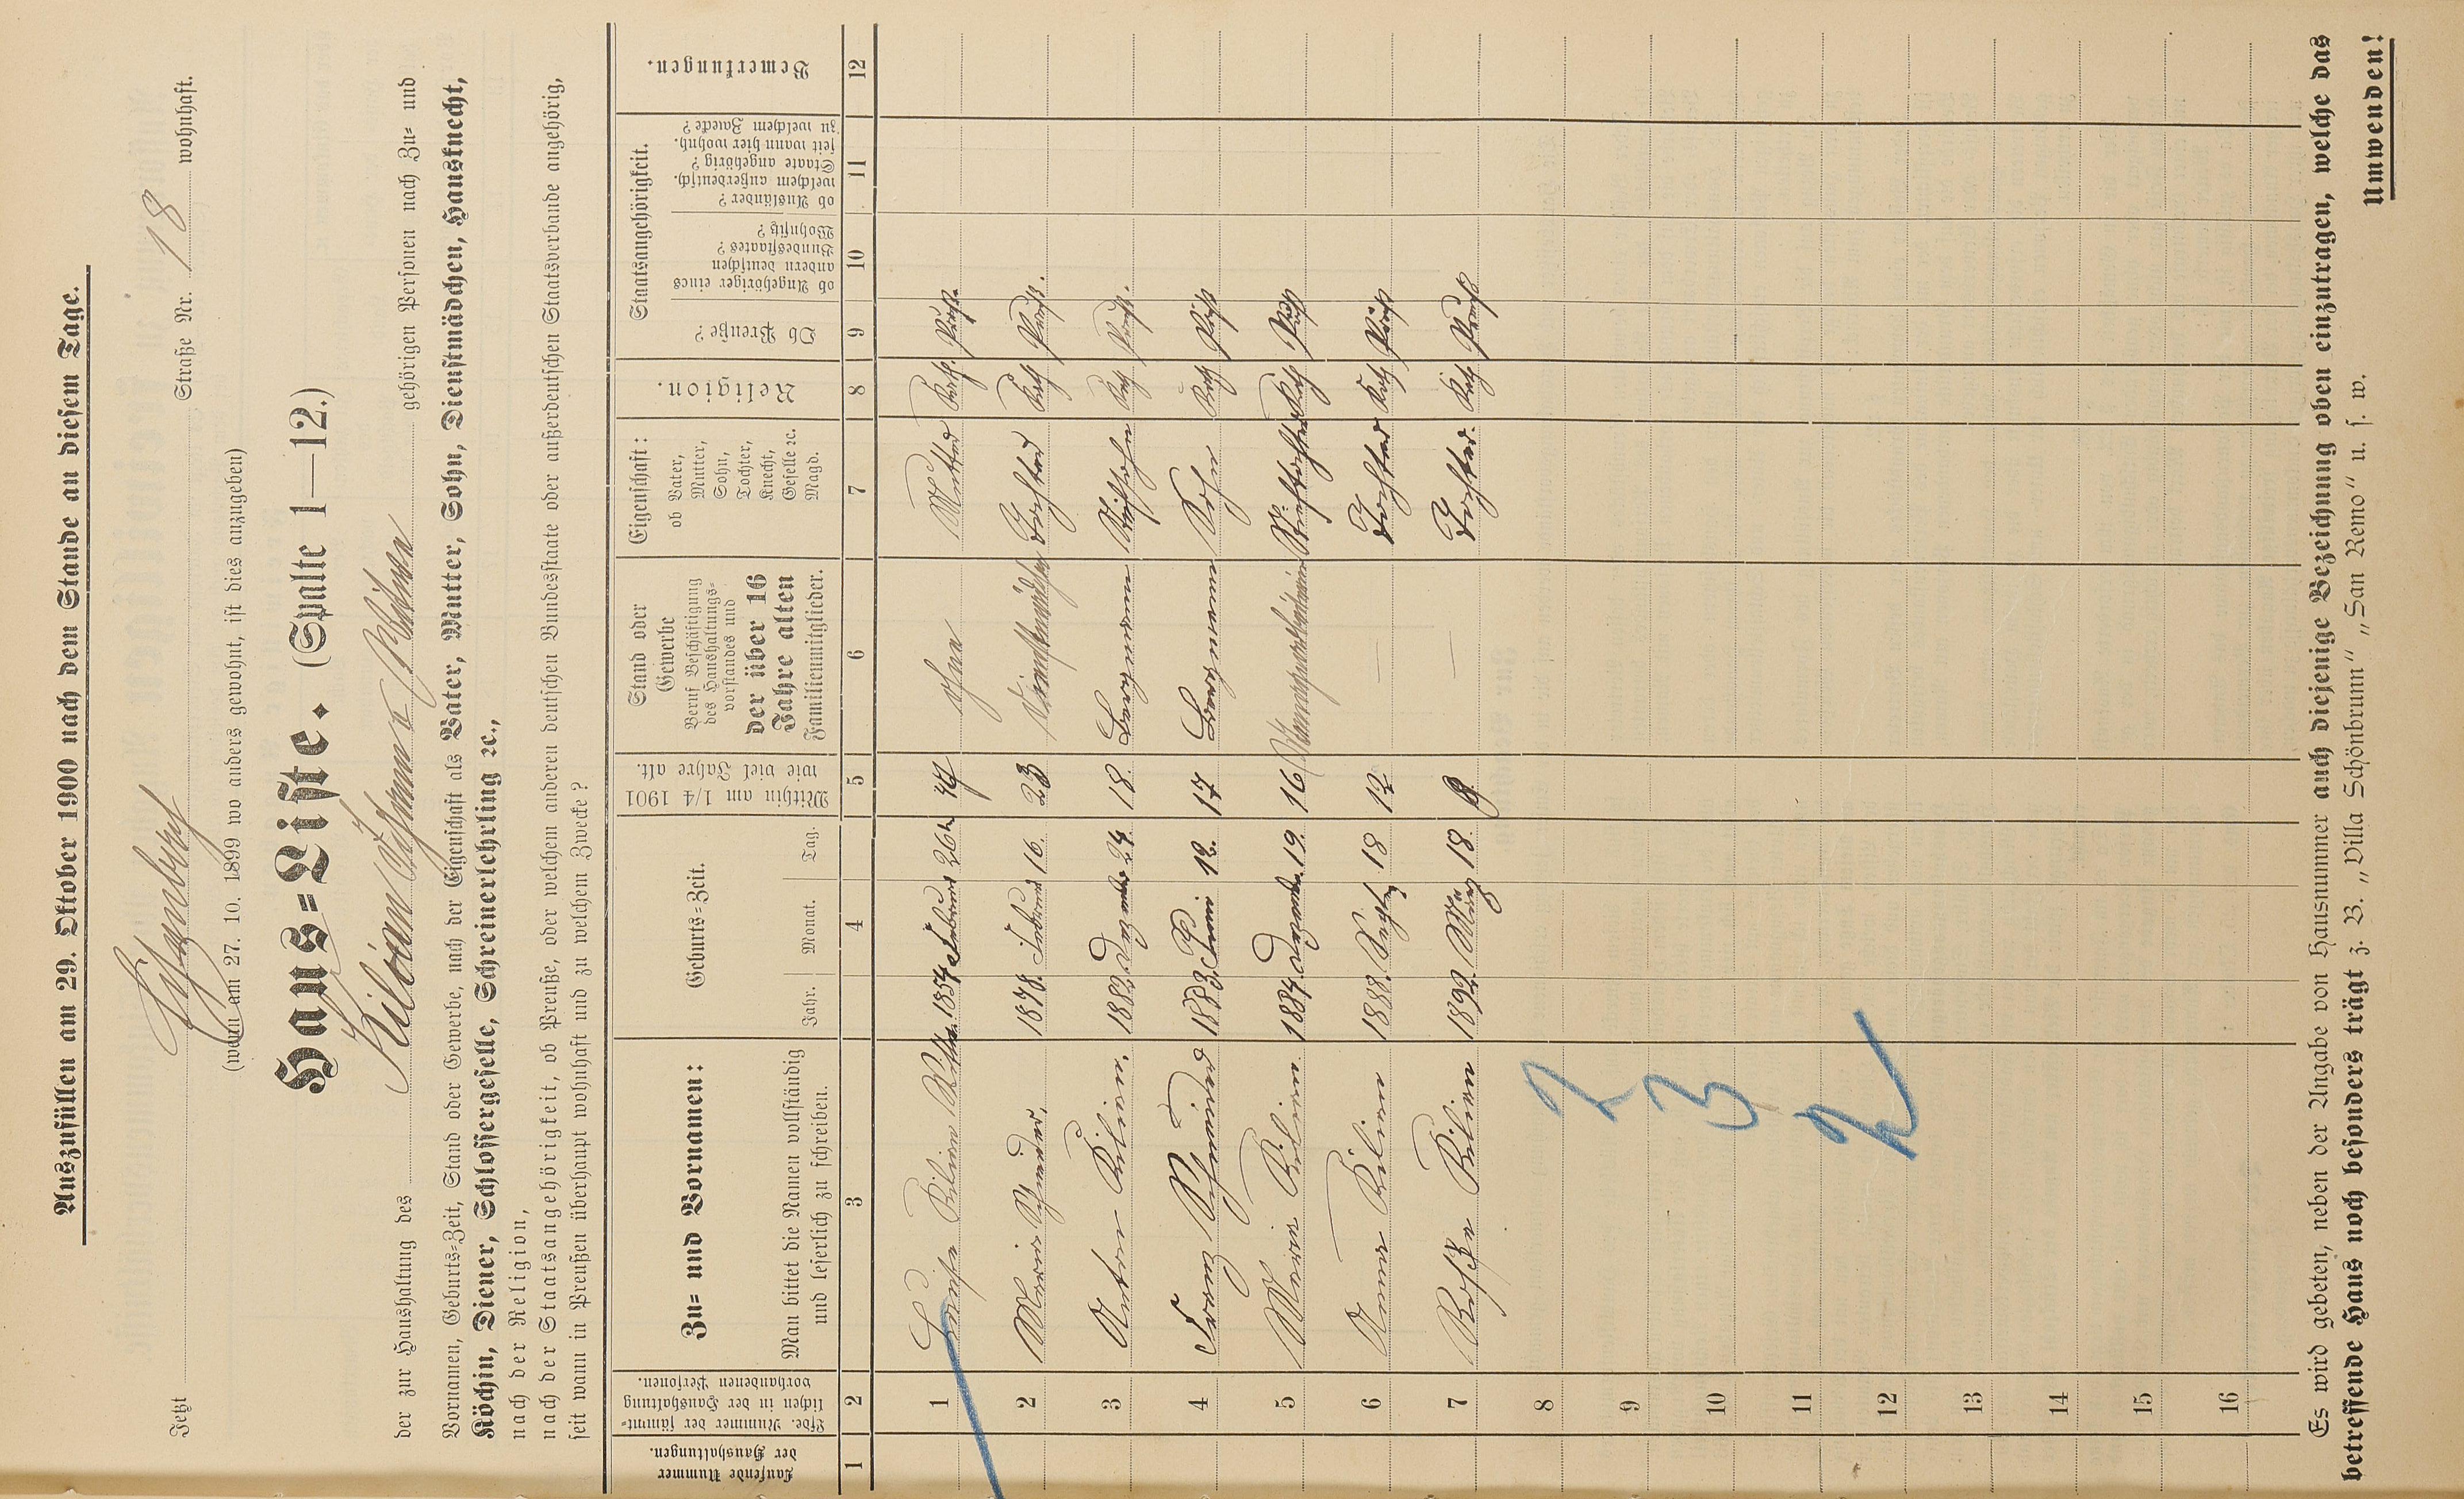 Auszufüllen am 29. Oktober 1900 nach dem Stande an diesem Tage.
Jetzt Straße Nr. 18 wohnhaft.
(wenn am 27. 10. 1899 wo anders gewohnt, ist dies anzugeben)
Haus-Liste. (Spalte 1—12.)
der zur Haushaltung des Kilian Johann Witwe gehörigen Personen nach Zu- und
Vornamen, Geburts-Zeit, Stand oder Gewerbe, nach der Eigenschaft als Vater, Mutter, Sohn, Dienstmädchen, Hausknecht,
Köchin, Diener, Schlossergeselle, Schreinerlehrling ꝛc.,
nach der Religion,
nach der Staatsangehörigkeit, ob Preuße, oder welchem anderen deutschen Bundesstaate oder außerdeutschen Staatsverbande angehörig,
seit wann in Preußen überhaupt wohnhaft und zu welchem Zwecke?
Laufende Nummer der Haushaltungen.
Lfde. Nummer der sämmtlichen in der Haushaltung vorhandenen Personen.
Zu- und Vornamen:
Man bittet die Namen vollständig und leserlich zu schreiben.
Geburts-Zeit.
Jahr. Monat. Tag.
Mithin am 1/4 1901 wie viel Jahre alt.
Stand oder Gewerbe
Beruf Beschäftigung des Haushaltungsvorstandes und
der über 16 Jahre alten
Familienmitglieder.
Eigenschaft:
ob Vater, Mutter, Sohn, Tochter, Knecht, Geselle ꝛc. Magd.
Religion.
Staatsangehörigkeit.
Ob Preuße?
ob Angehöriger eines andern deutschen Bundesstaates? Wohnsitz?
ob Ausländer? welchem außerdeutsch. Staate angehörig? seit wann hier wohnh. zu welchem Zwecke?
Bemerkungen.
1 2 3 4 5 6 7 8 9 10 11 12
1 Luise Kilian Witwe 1854 Februar 26 ohne Mutter Kath. Preuß.
2 Maria Schneider 1878. Februar 16. 23 Dienstmädchen Tochter Kath Preuß.
3 Anton Kilian. 1882. Dezember 24. 18. Bergmann Stiefsohn Kath Preuß.
4 Franz Schneider 1883. Juni 12. 17 Bergmann Sohn Kath Preuß
5 Maria Kilian 1884. Dezember 19. 16 Stieftochter Kath Preuß
6 Anna Kilian 1888. Septb. 18 12 — Tochter Kath Preuß
7 Kilian 1892. März 18. 8 — Tochter. Kath Preuß
8
9
10
11
12
13
14
15
16
2
3
2
Es wird gebeten, neben der Angabe von Hausnummer auch diejenige Bezeichnung oben einzutragen, welche das
betreffende Haus noch besonders trägt z. B. „Villa Schönbrunn" „San Remo" u. s. w.
Umwenden!